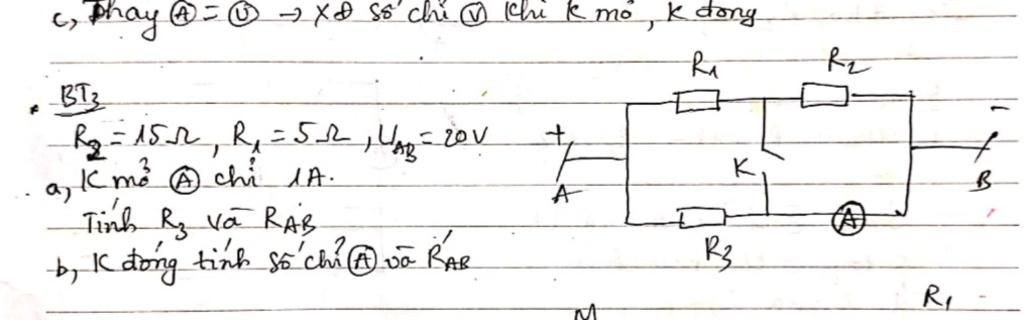 c, Thay Ⓐ = Ⓥ → XĐ số chỉ Ⓥ khi K mở, K đóng
BT3
R2 = 15Ω, R1 = 5Ω, UAB = 20V
a, K mở Ⓐ chỉ 1A.
Tính R3 và RAB
b, K đóng tính số chỉ Ⓐ và R'AB
R1
R2
+
-
A
K
B
A
R3
R1
M